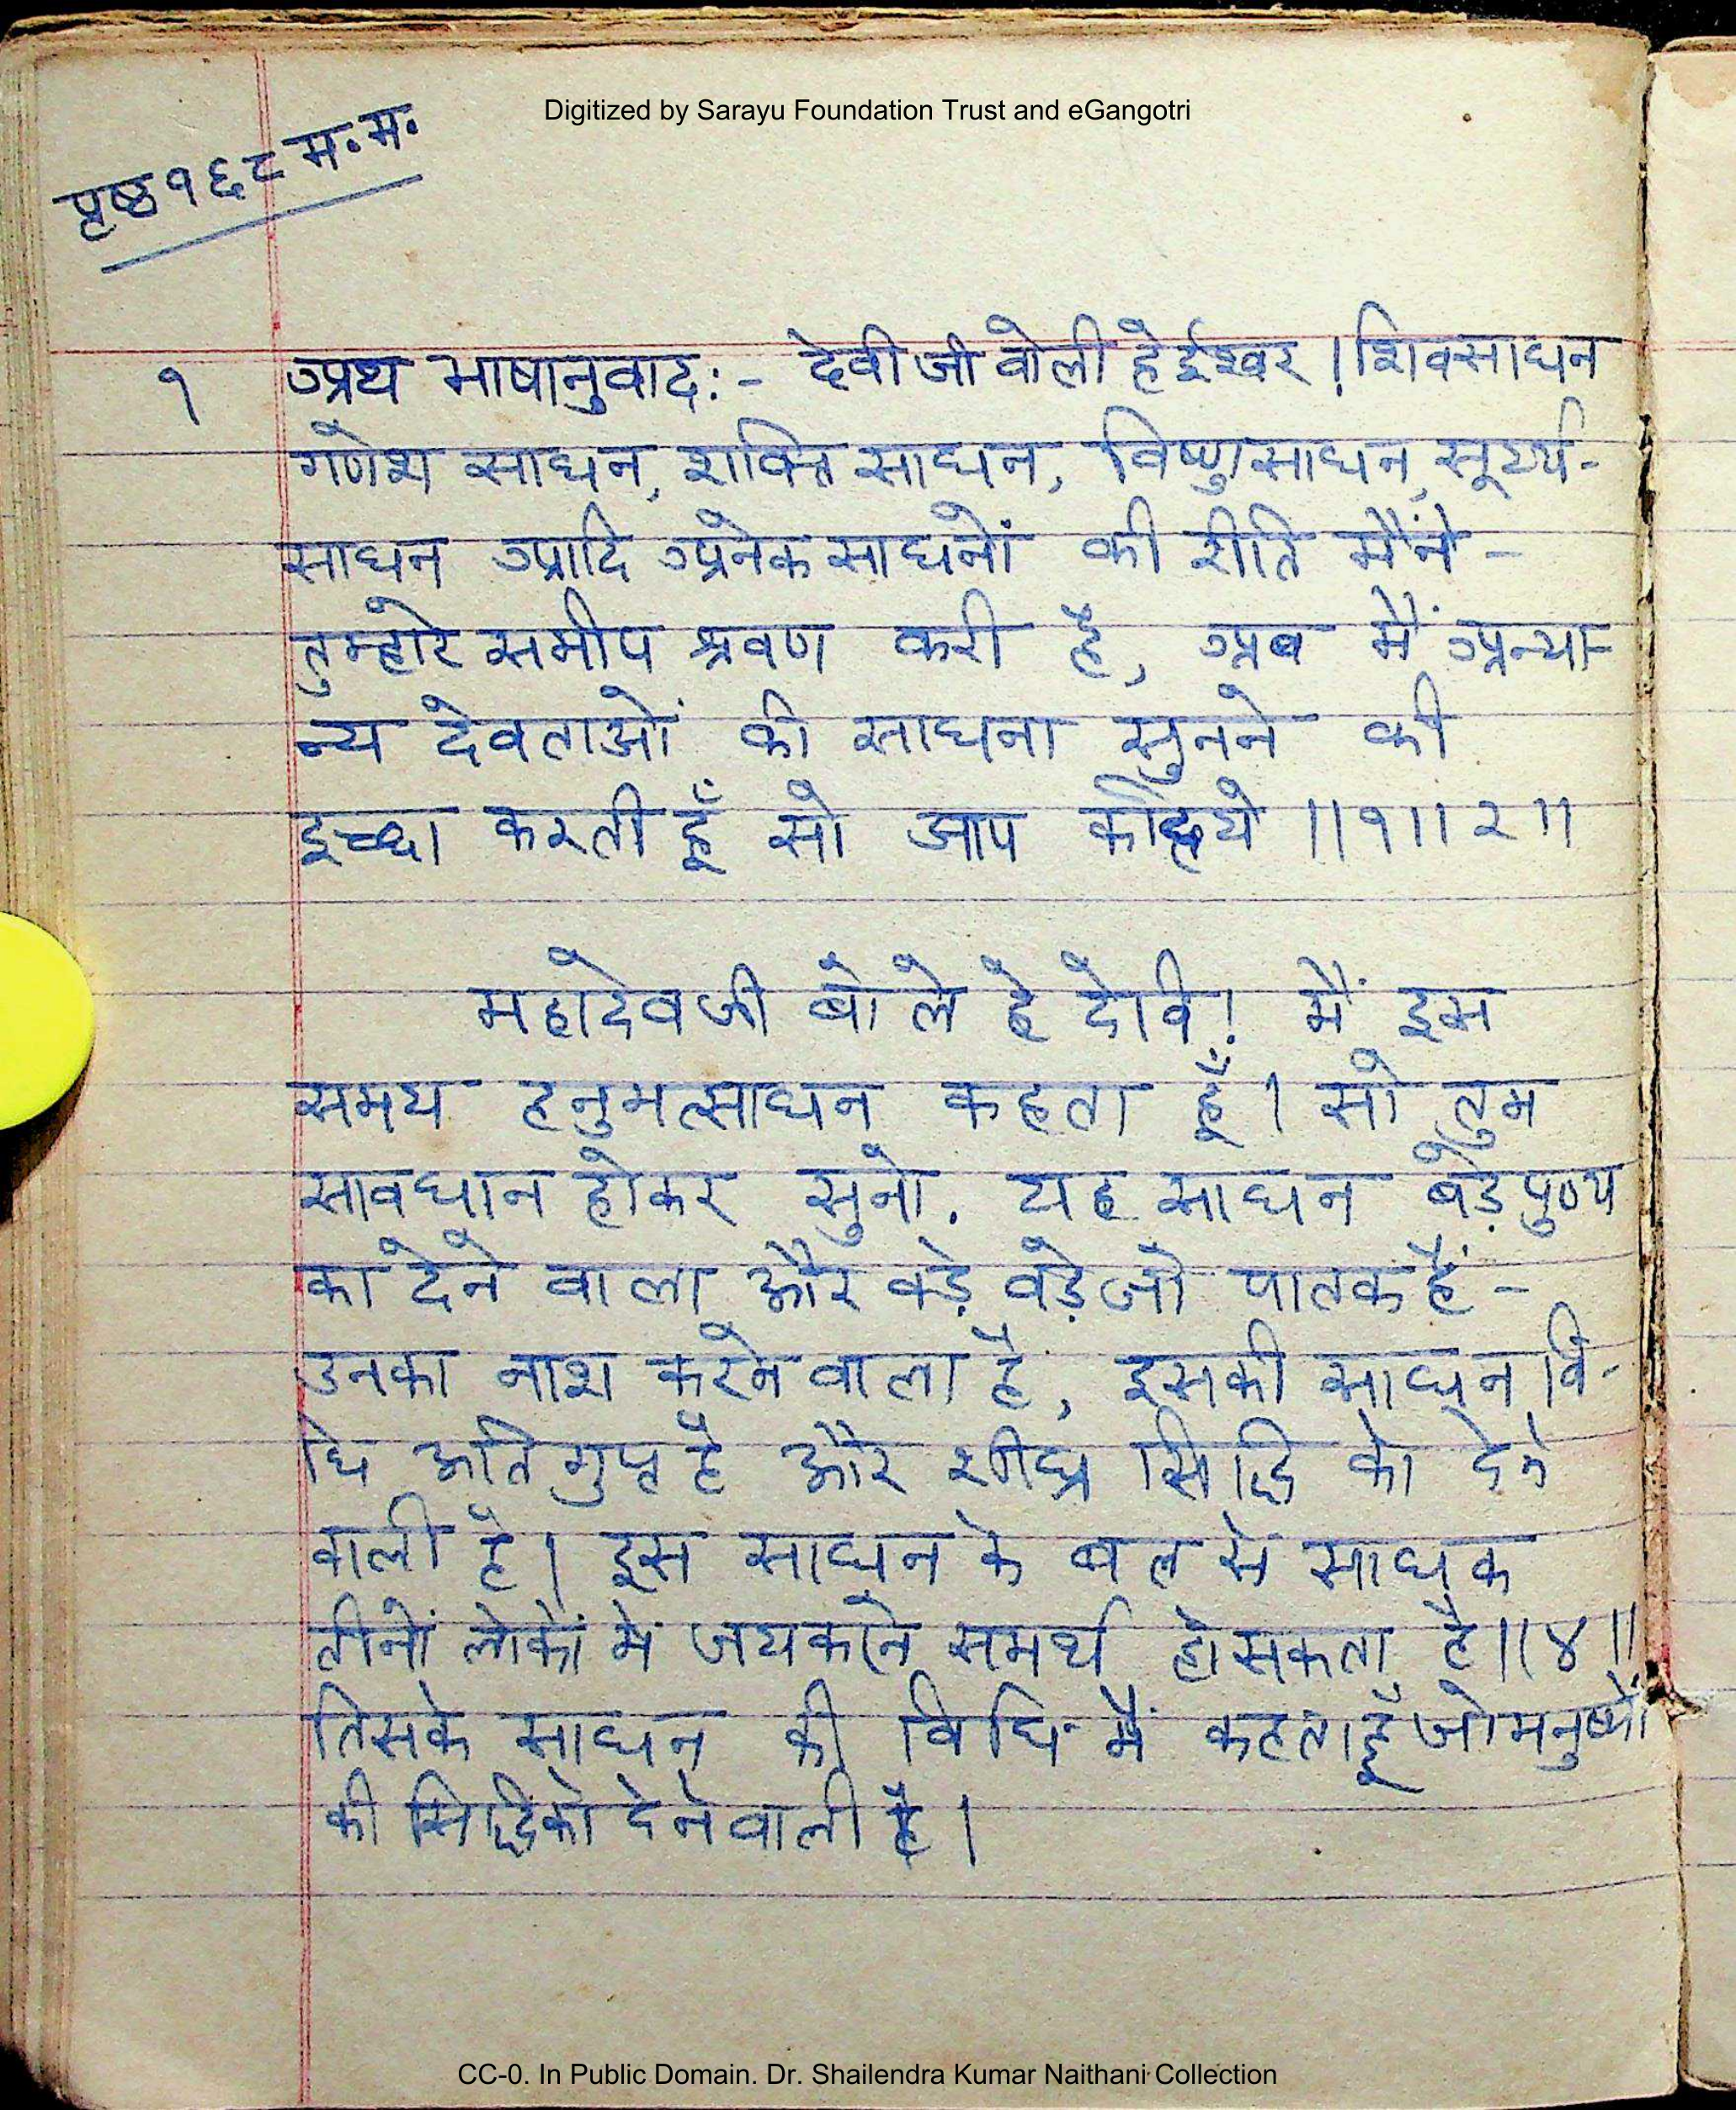 Digitized by Sarayu Foundation Trust and eGangotri
पृष्ठ १६८ म.म.
१ अथ भाषानुवाद:- देवी जी वोली हे ईश्वर । शिवसाधन
गणेश साधन, शक्ति साधन, विष्णु साधन, सूर्य्य-
साधन आदि अनेक साधनों की रीति मैंने -
तुम्हारे समीप श्रवण करी है, अब मैं अन्या-
न्य देवताओं की साधना सुनने की
इच्छा करती हूँ सो आप कहिये ॥१॥२॥
महादेव जी बोले हे देवि! मैं इस
समय हनुमत्साधन कहता हूँ। सो तुम
सावधान होकर सुनो. यह साधन बड़े पुण्य
का देने वाला और वड़े वड़े जो पातक हैं -
उनका नाश करने वाला है, इसकी साधन वि-
धि अति गुप्त है और शीघ्र सिद्धि को देने
वाली है। इस साधन के बल से साधक
तीनों लोकों मे जय करने समर्थ हो सकता है॥४॥
तिसके साधन की विधि मैं कहता हूँ जो मनुष्यों
की सिद्धि को देने वाली है।
CC-0. In Public Domain. Dr. Shailendra Kumar Naithani Collection